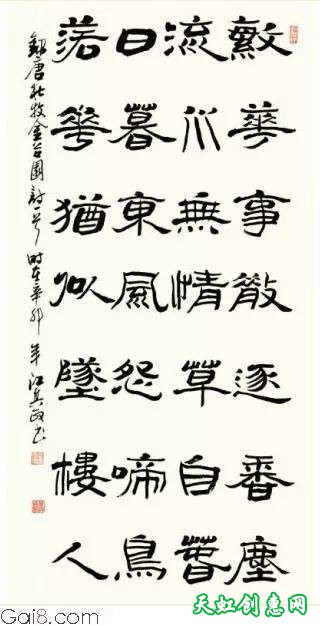 繁華事散逐香塵
流水無情草自春
日暮東風怨啼鳥
落花猶似墜樓人
録唐杜牧金谷園詩一首 时在辛卯年 江
天虹创意网
Gai8.com